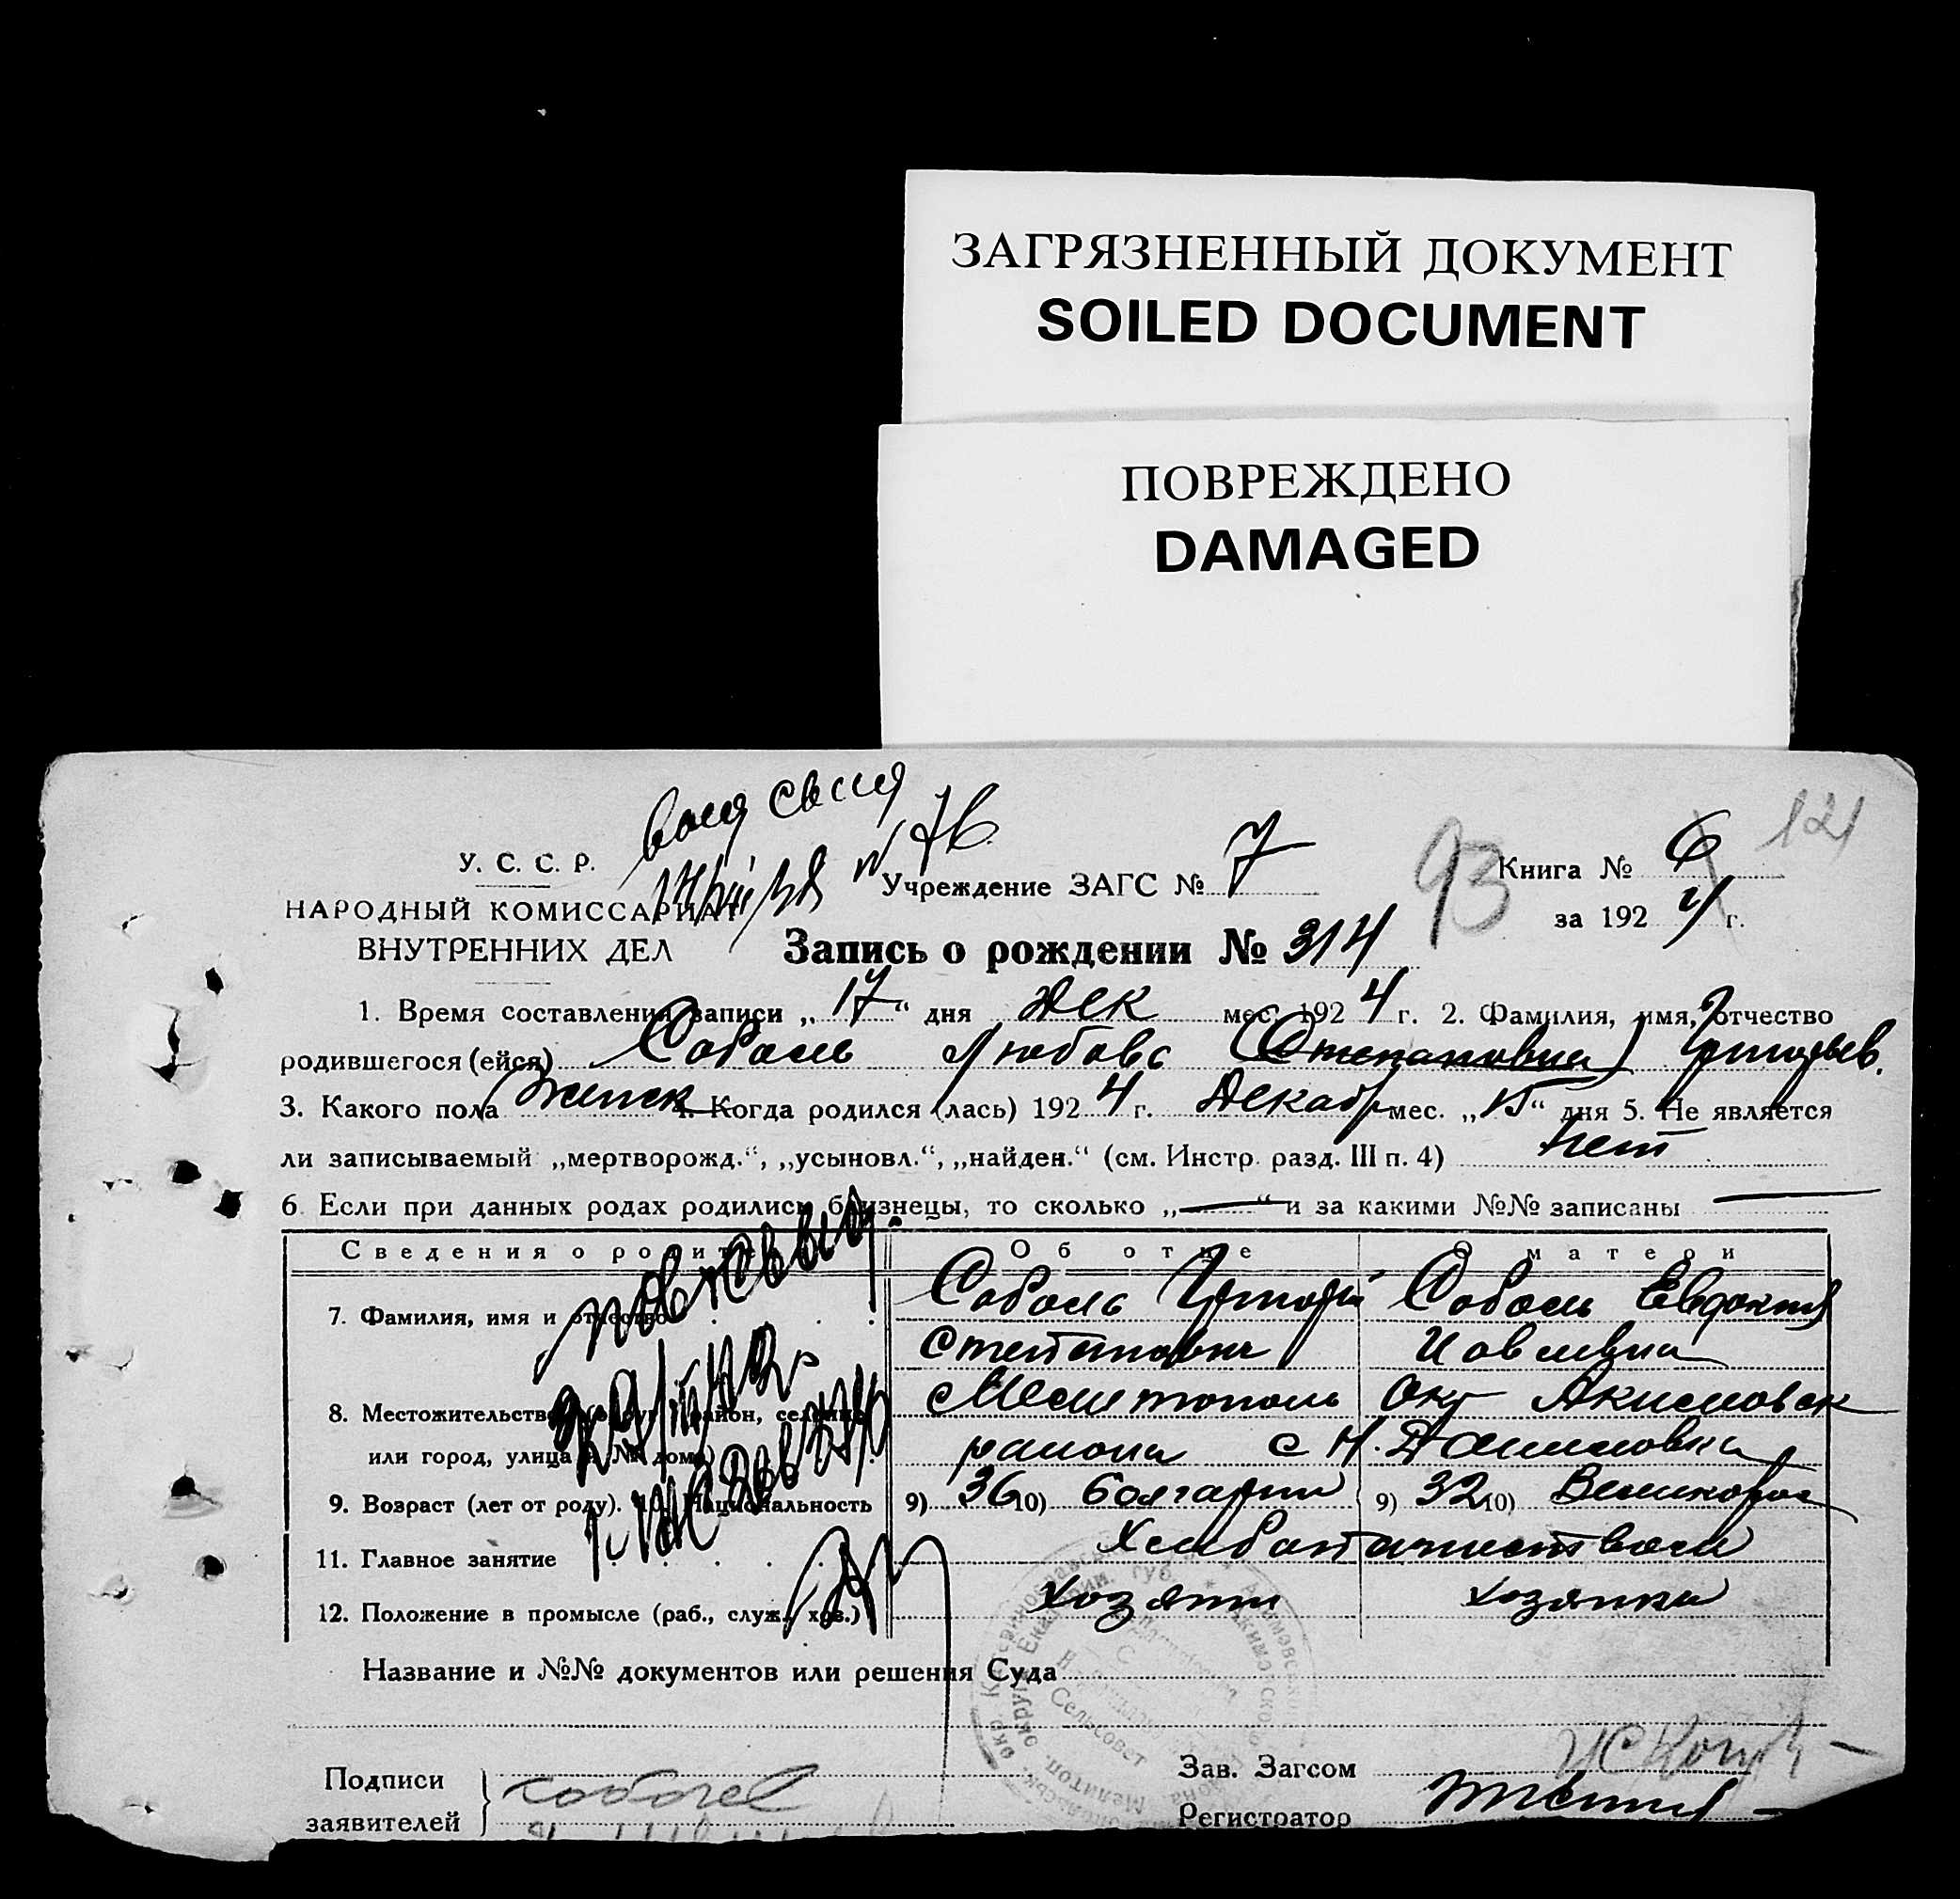 ЗАГРЯЗНЕННЫЙ ДОКУМЕНТ
SOILED DOCUMENT
ПОВРЕЖДЕНО
DAMAGED
У. С. С. Р.
НАРОДНЫЙ КОМИССАРИАТ
ВНУТРЕННИХ ДЕЛ
Учреждение ЗАГС № 7
93
121
Книга № 6
за 1924 г.
Запись о рождении № 314
1. Время составления записи „17“ дня Дек мес. 1924 г. 2. Фамилия, имя, отчество
родившегося (ейся) Соболь Любовь (Степановна) Григорьев.
3. Какого пола женск 4. Когда родился (лась) 1924 г. Декабр мес. „15“ дня 5. Не является
ли записываемый „мертворожд.“, „усыновл.“, „найден.“ (см. Инстр. разд. III п. 4) нет
6 Если при данных родах родились близнецы, то сколько „—“ и за какими №№ записаны —
Сведения о родите Об отце О матери
7. Фамилия, имя и отчество Соболь Григорій Соболь Евдокия
Степанович Иовлевна
8. Местожительство район, селение Мелитополь Окр Акимовск
или город, улица и № дома) района с Н. Даниловка
9. Возраст (лет от роду). 10. Национальность 9) 36 10) болгарин 9) 32 10) Великорос
11. Главное занятие Хлебопашеством
12. Положение в промысле (раб., служ., хоз.) хозяин хозянка
Название и №№ документов или решения Суда
Сельсовет
Подписи
заявителей
соболев
Зав. Загсом
Регистратор